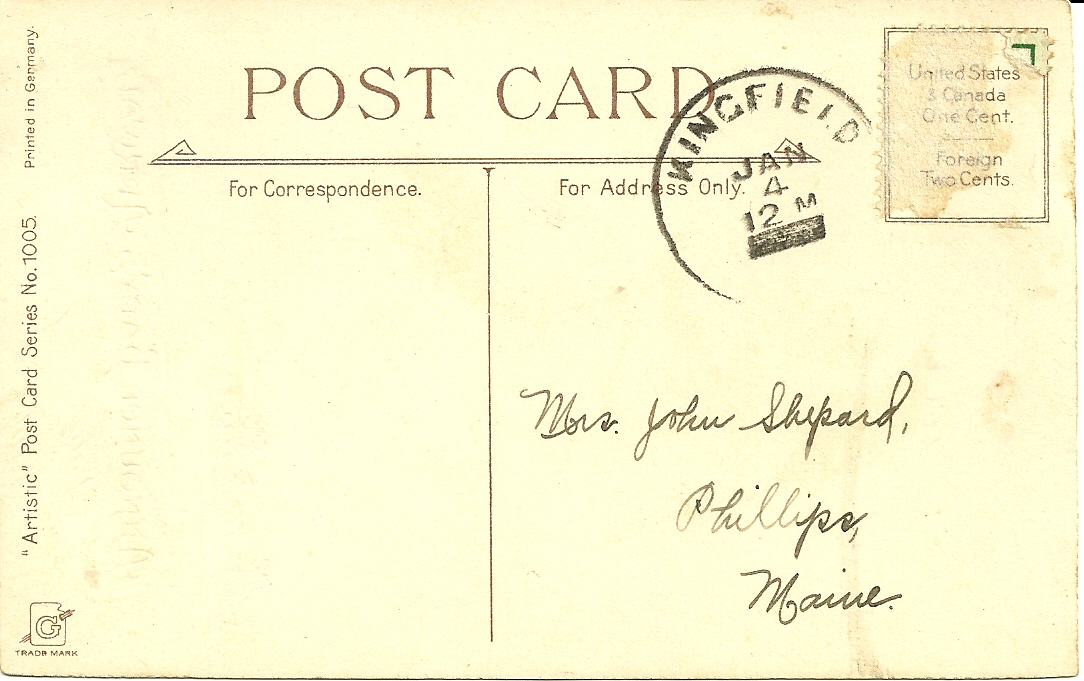 Printed in Germany.
"Artistic" Post Card Series No. 1005.
G
TRADE MARK
POST CARD
For Correspondence.
For Address Only.
KINGFIELD
JAN
4
12 M
United States
& Canada
One Cent.
Foreign
Two Cents.
Mrs. John Shepard,
Phillips,
Maine.